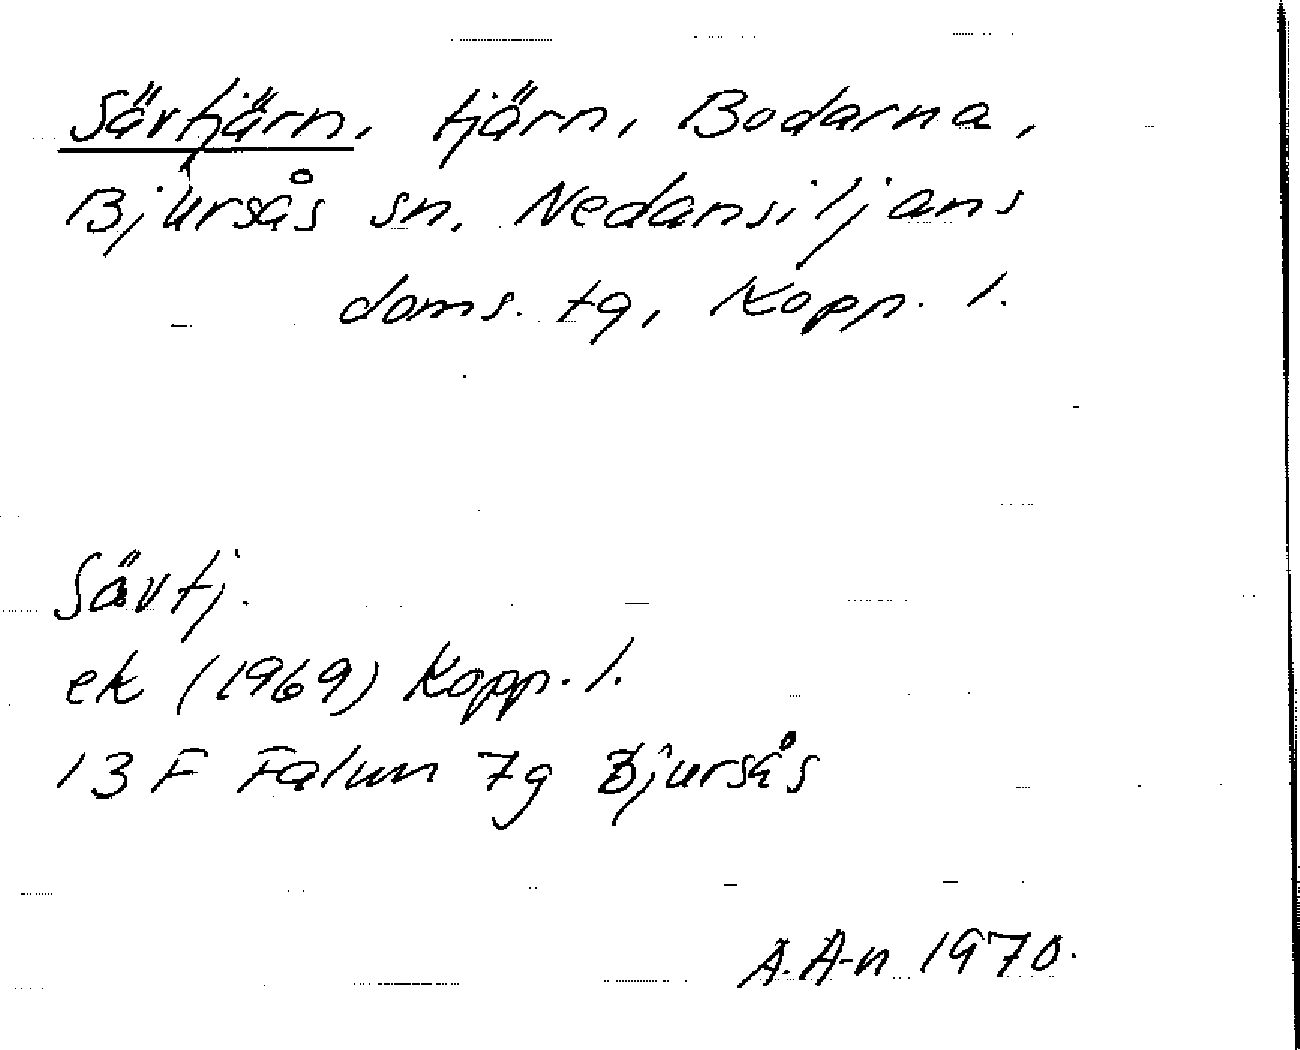 Sävtjärn, tjärn, Bodarna,
Bjursås sn. Nedansiljans
doms. tg, Kopp. l.
Sävtj.
ek (1969) Kopp. l.
13 F Falun 7g Bjursås
A. A-n 1970.